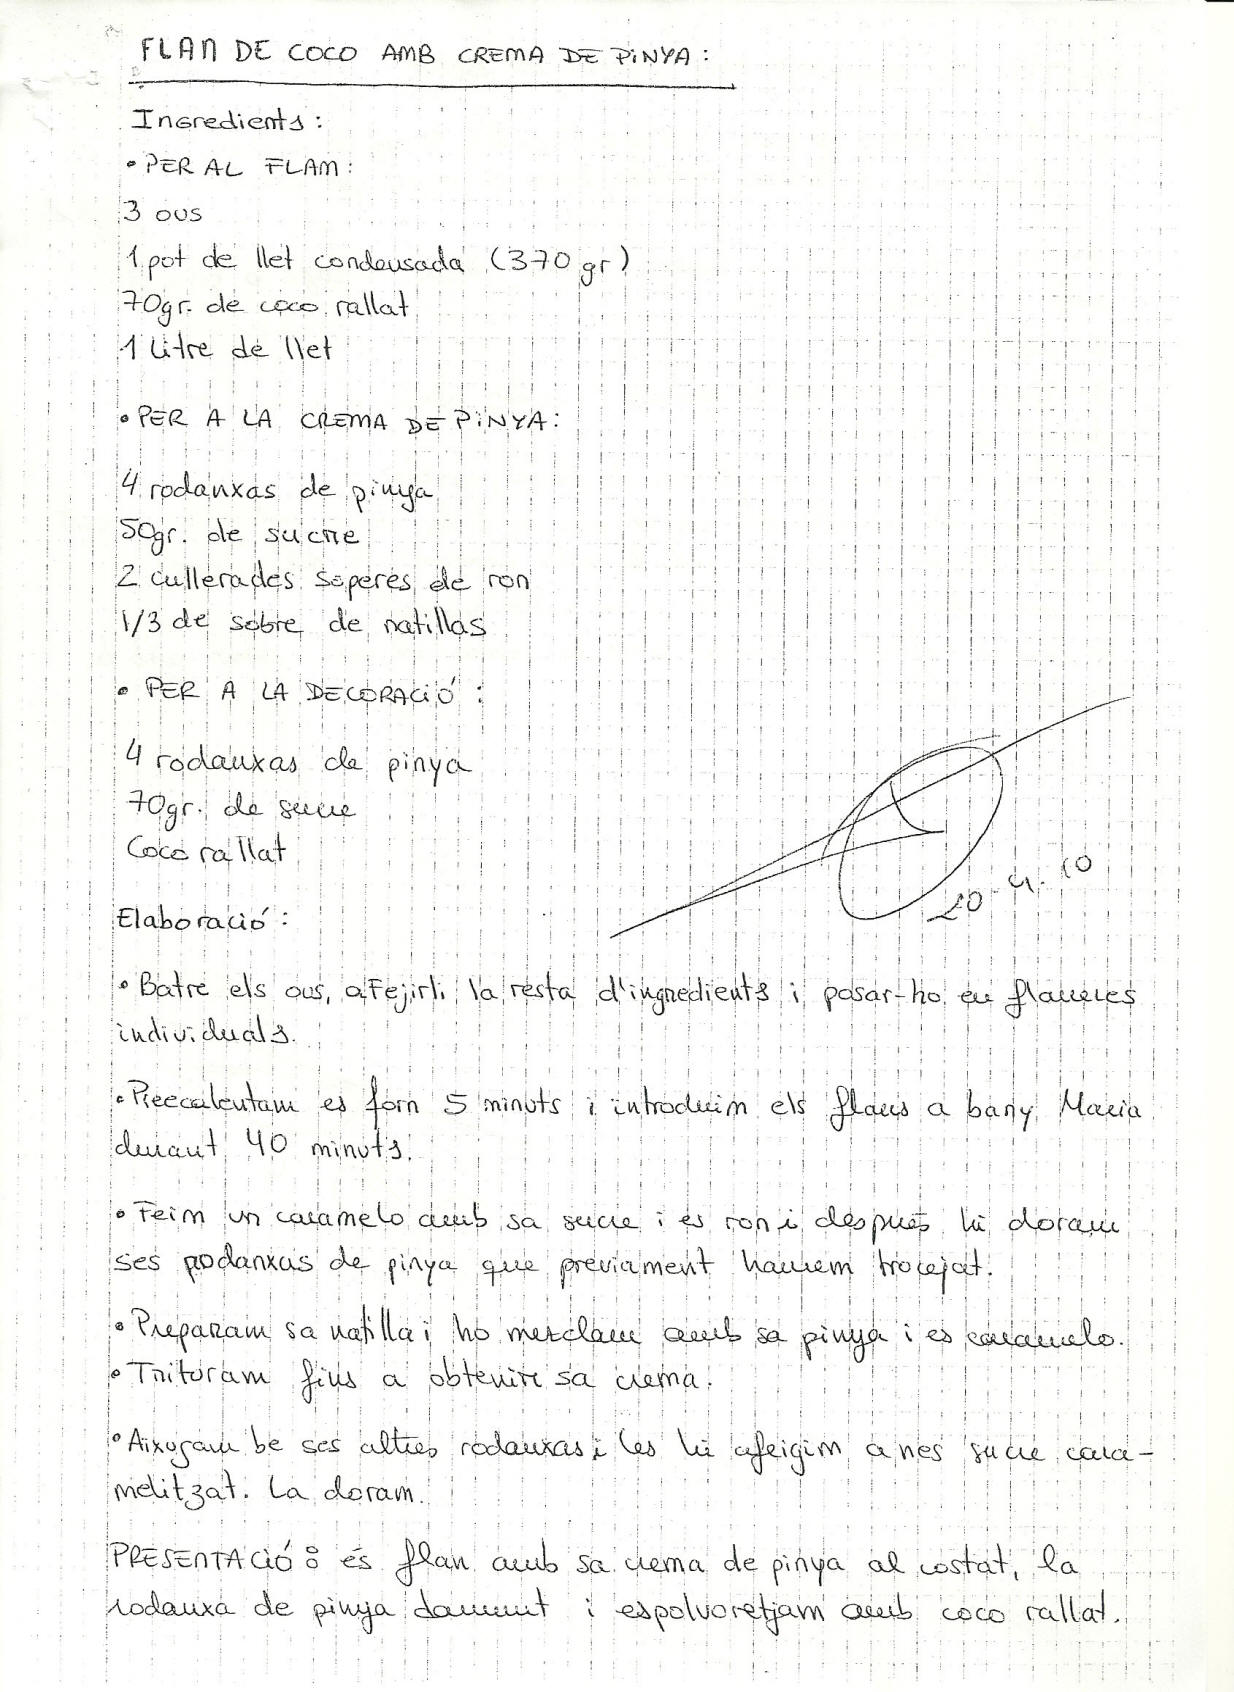 FLAN DE COCO AMB CREMA DE PINYA:
Ingredients:
• PER AL FLAM:
3 ous
1 pot de llet condensada (370 gr)
70gr. de coco rallat
1 litre de llet
• PER A LA CREMA DE PINYA:
4 rodanxas de pinya
50gr. de sucre
2 cullerades soperes de ron
1/3 de sobre de natillas
• PER A LA DECORACIÓ:
4 rodanxas de pinya
70gr. de sucre
Coco rallat
20-4-10
Elaboració:
• Batre els ous, afejirli la resta d'ingredients i posar-ho en flaneres
individuals.
• Preecalentam es forn 5 minuts i introduim els flans a bany Maria
durant 40 minuts.
• Feim un caramelo amb sa sucre i es ron i despues li doram
ses rodanxas de pinya que previament haurem trocejat.
• Preparam sa natilla i ho mezclam amb sa pinya i es caramelo.
• Trituram fins a obtenir sa crema.
• Aixugam be ses altres rodanxas i les hi afeigim a nes sucre cara-
melitzat. La doram.
PRESENTACIÓ: és flan amb sa crema de pinya al costat, la
rodanxa de pinya damunt i espolvoretjam amb coco rallat.